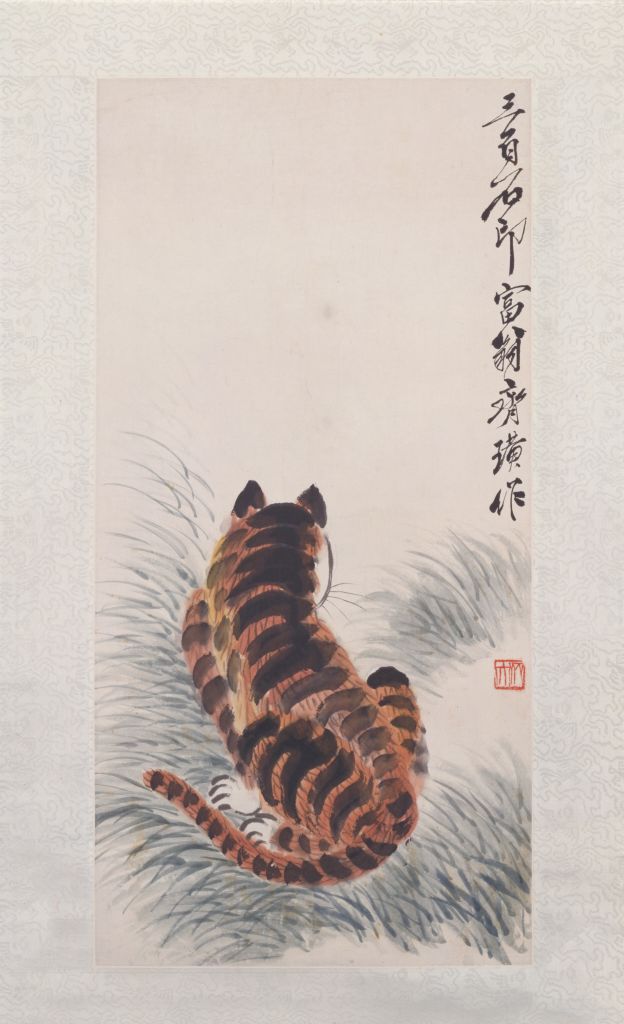 三百石印富翁齊璜作
木人